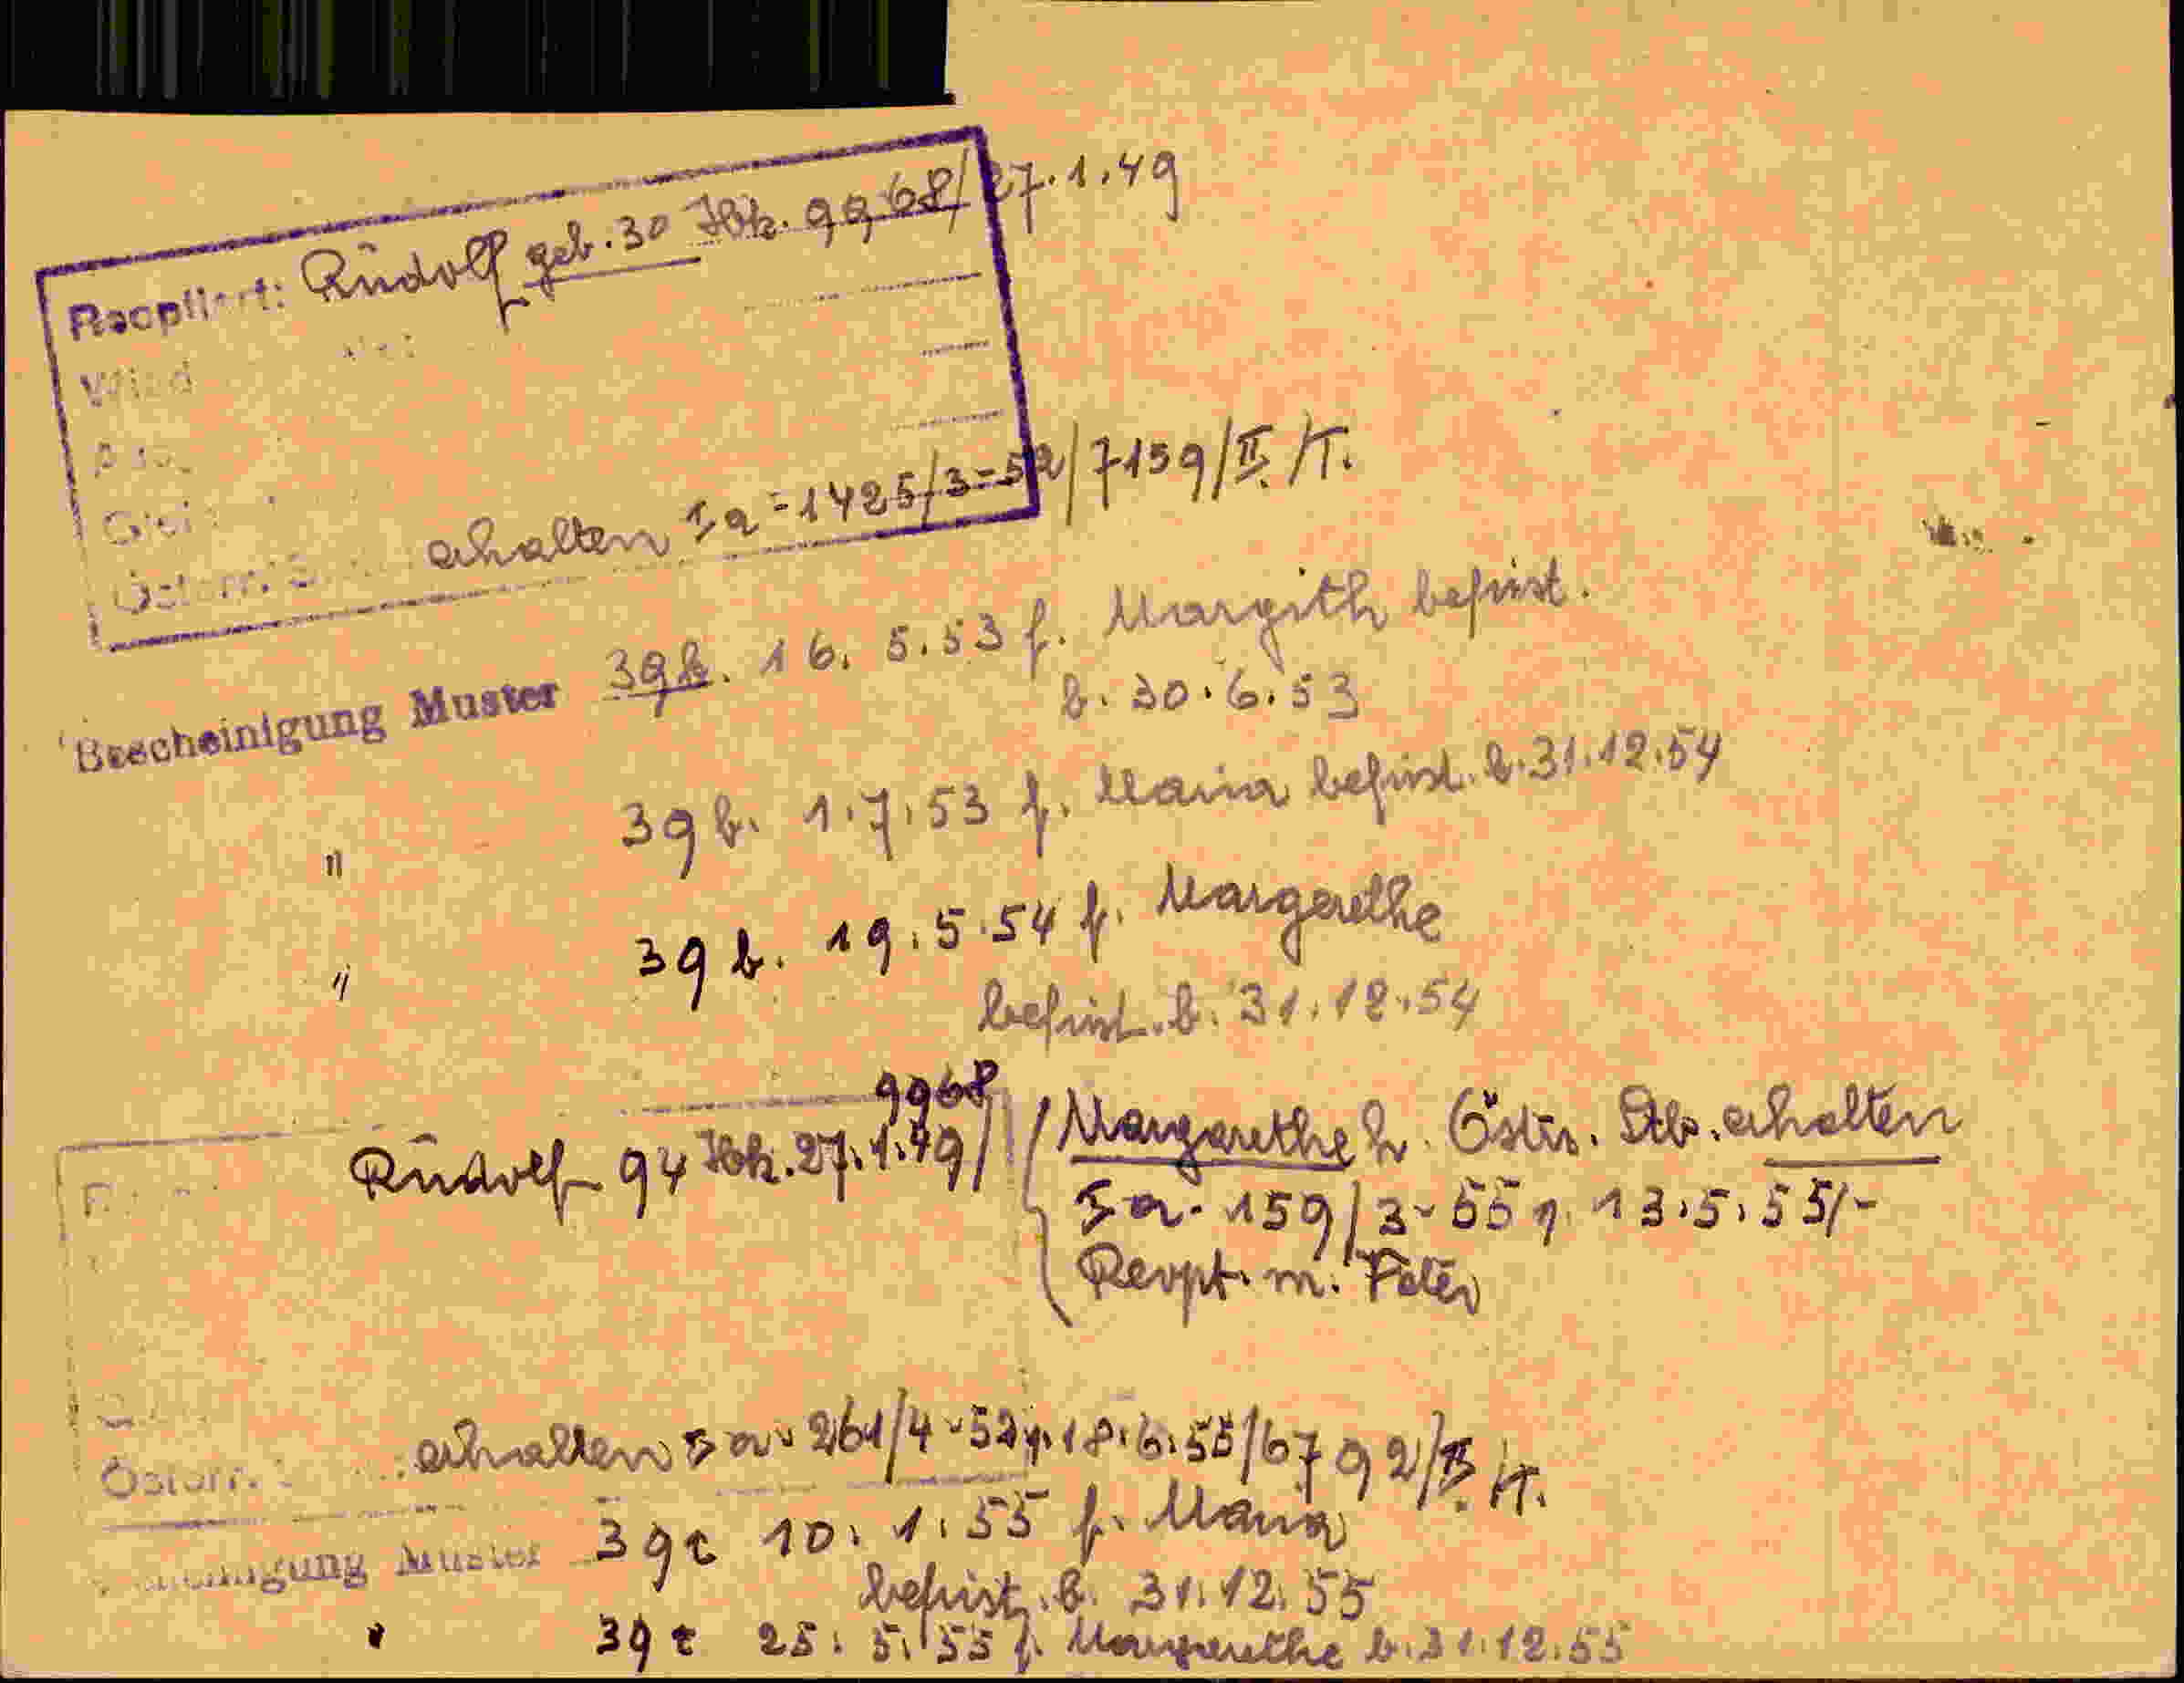 Reoptiert: Rudolf geb. 30 Hbk. 9968/27.1.49
erhalten Ia-1425/3-52/7159/II./T.
Bescheinigung Muster 39b. 16.5.53 f. Margith befrist.
b. 30.6.53
" 39b. 1.7.53 f. Maria befrist. b. 31.12.54
" 39b. 19.5.54 f. Margarethe
befrist. b. 31.12.54
9968
Rudolf 94 Hbk. 27.1.49/
Margarethe h. Östr. Stb. erhalten
Ia-159/3-55 v. 13.5.55/-
Reopt. m. Peter
Österr. erhalten Ia-261/4-52 v. 18.6.55/6792/II./T.
Muster 39c 10.1.55 f. Maria
befrist. b. 31.12.55
" 39c 25.5.55 f. Margarethe b. 31.12.55